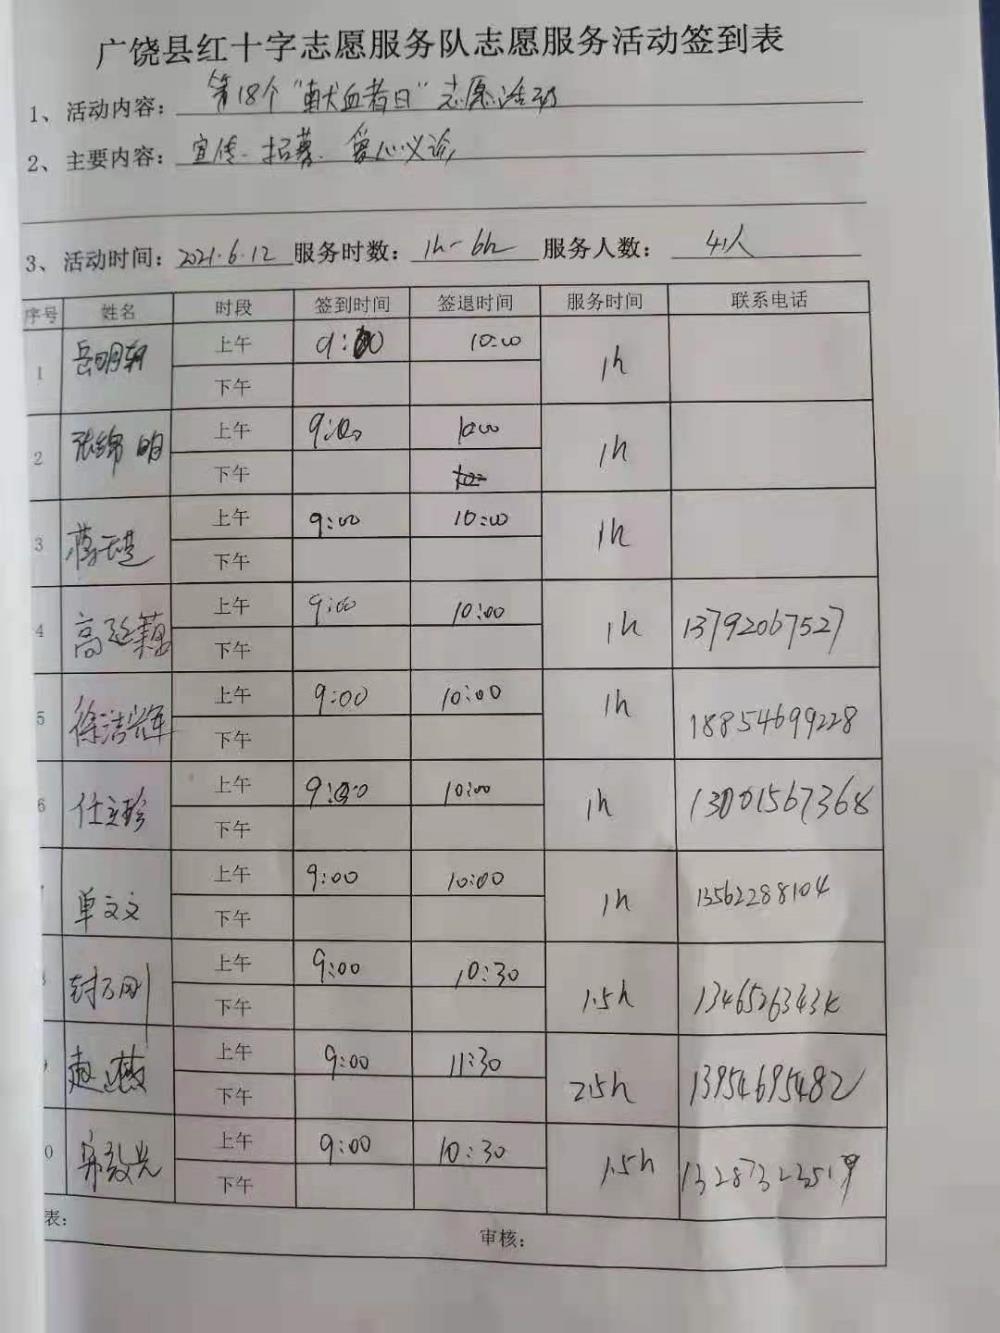 广饶县红十字志愿服务队志愿服务活动签到表
1、活动内容：第18个“献血者日”志愿活动
2、主要内容：宣传、招募、爱心义诊
3、活动时间：2021.6.12 服务时数：1h-6h 服务人数：41人
序号 姓名 时段 签到时间 签退时间 服务时间 联系电话
1 岳明轩 上午 9:00 10:00 1h
下午
2 张绵明 上午 9:00 10:00 1h
下午
3 上午 9:00 10:00 1h
下午
4 高延 上午 9:00 10:00 1h 13792067527
下午
5 徐洁辉 上午 9:00 10:00 1h 18854699228
下午
6 仕立珍 上午 9:00 10:00 1h 13001567368
下午
单文文 上午 9:00 10:00 1h 13562288104
下午
封万刚 上午 9:00 10:30 1.5h
下午
赵燕 上午 9:00 11:30 2.5h 13954695482
下午
0 上午 9:00 10:30 1.5h 13287323519
下午
表：
审核：